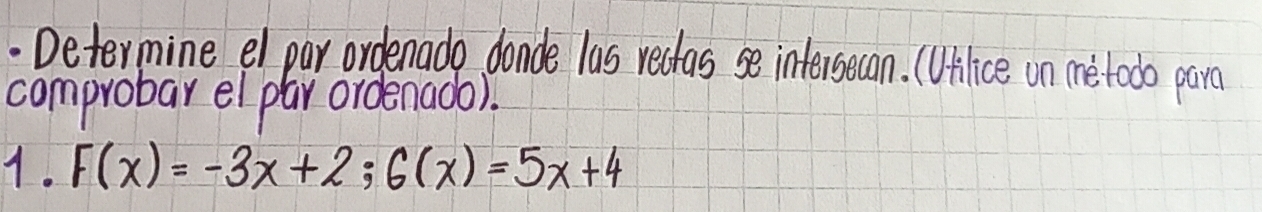 · Determine el par ordenado donde las rectas se intersecan. (Utilice un método para
comprobar el par ordenado).
1. F(x) = -3x + 2 ; G(x) = 5x + 4